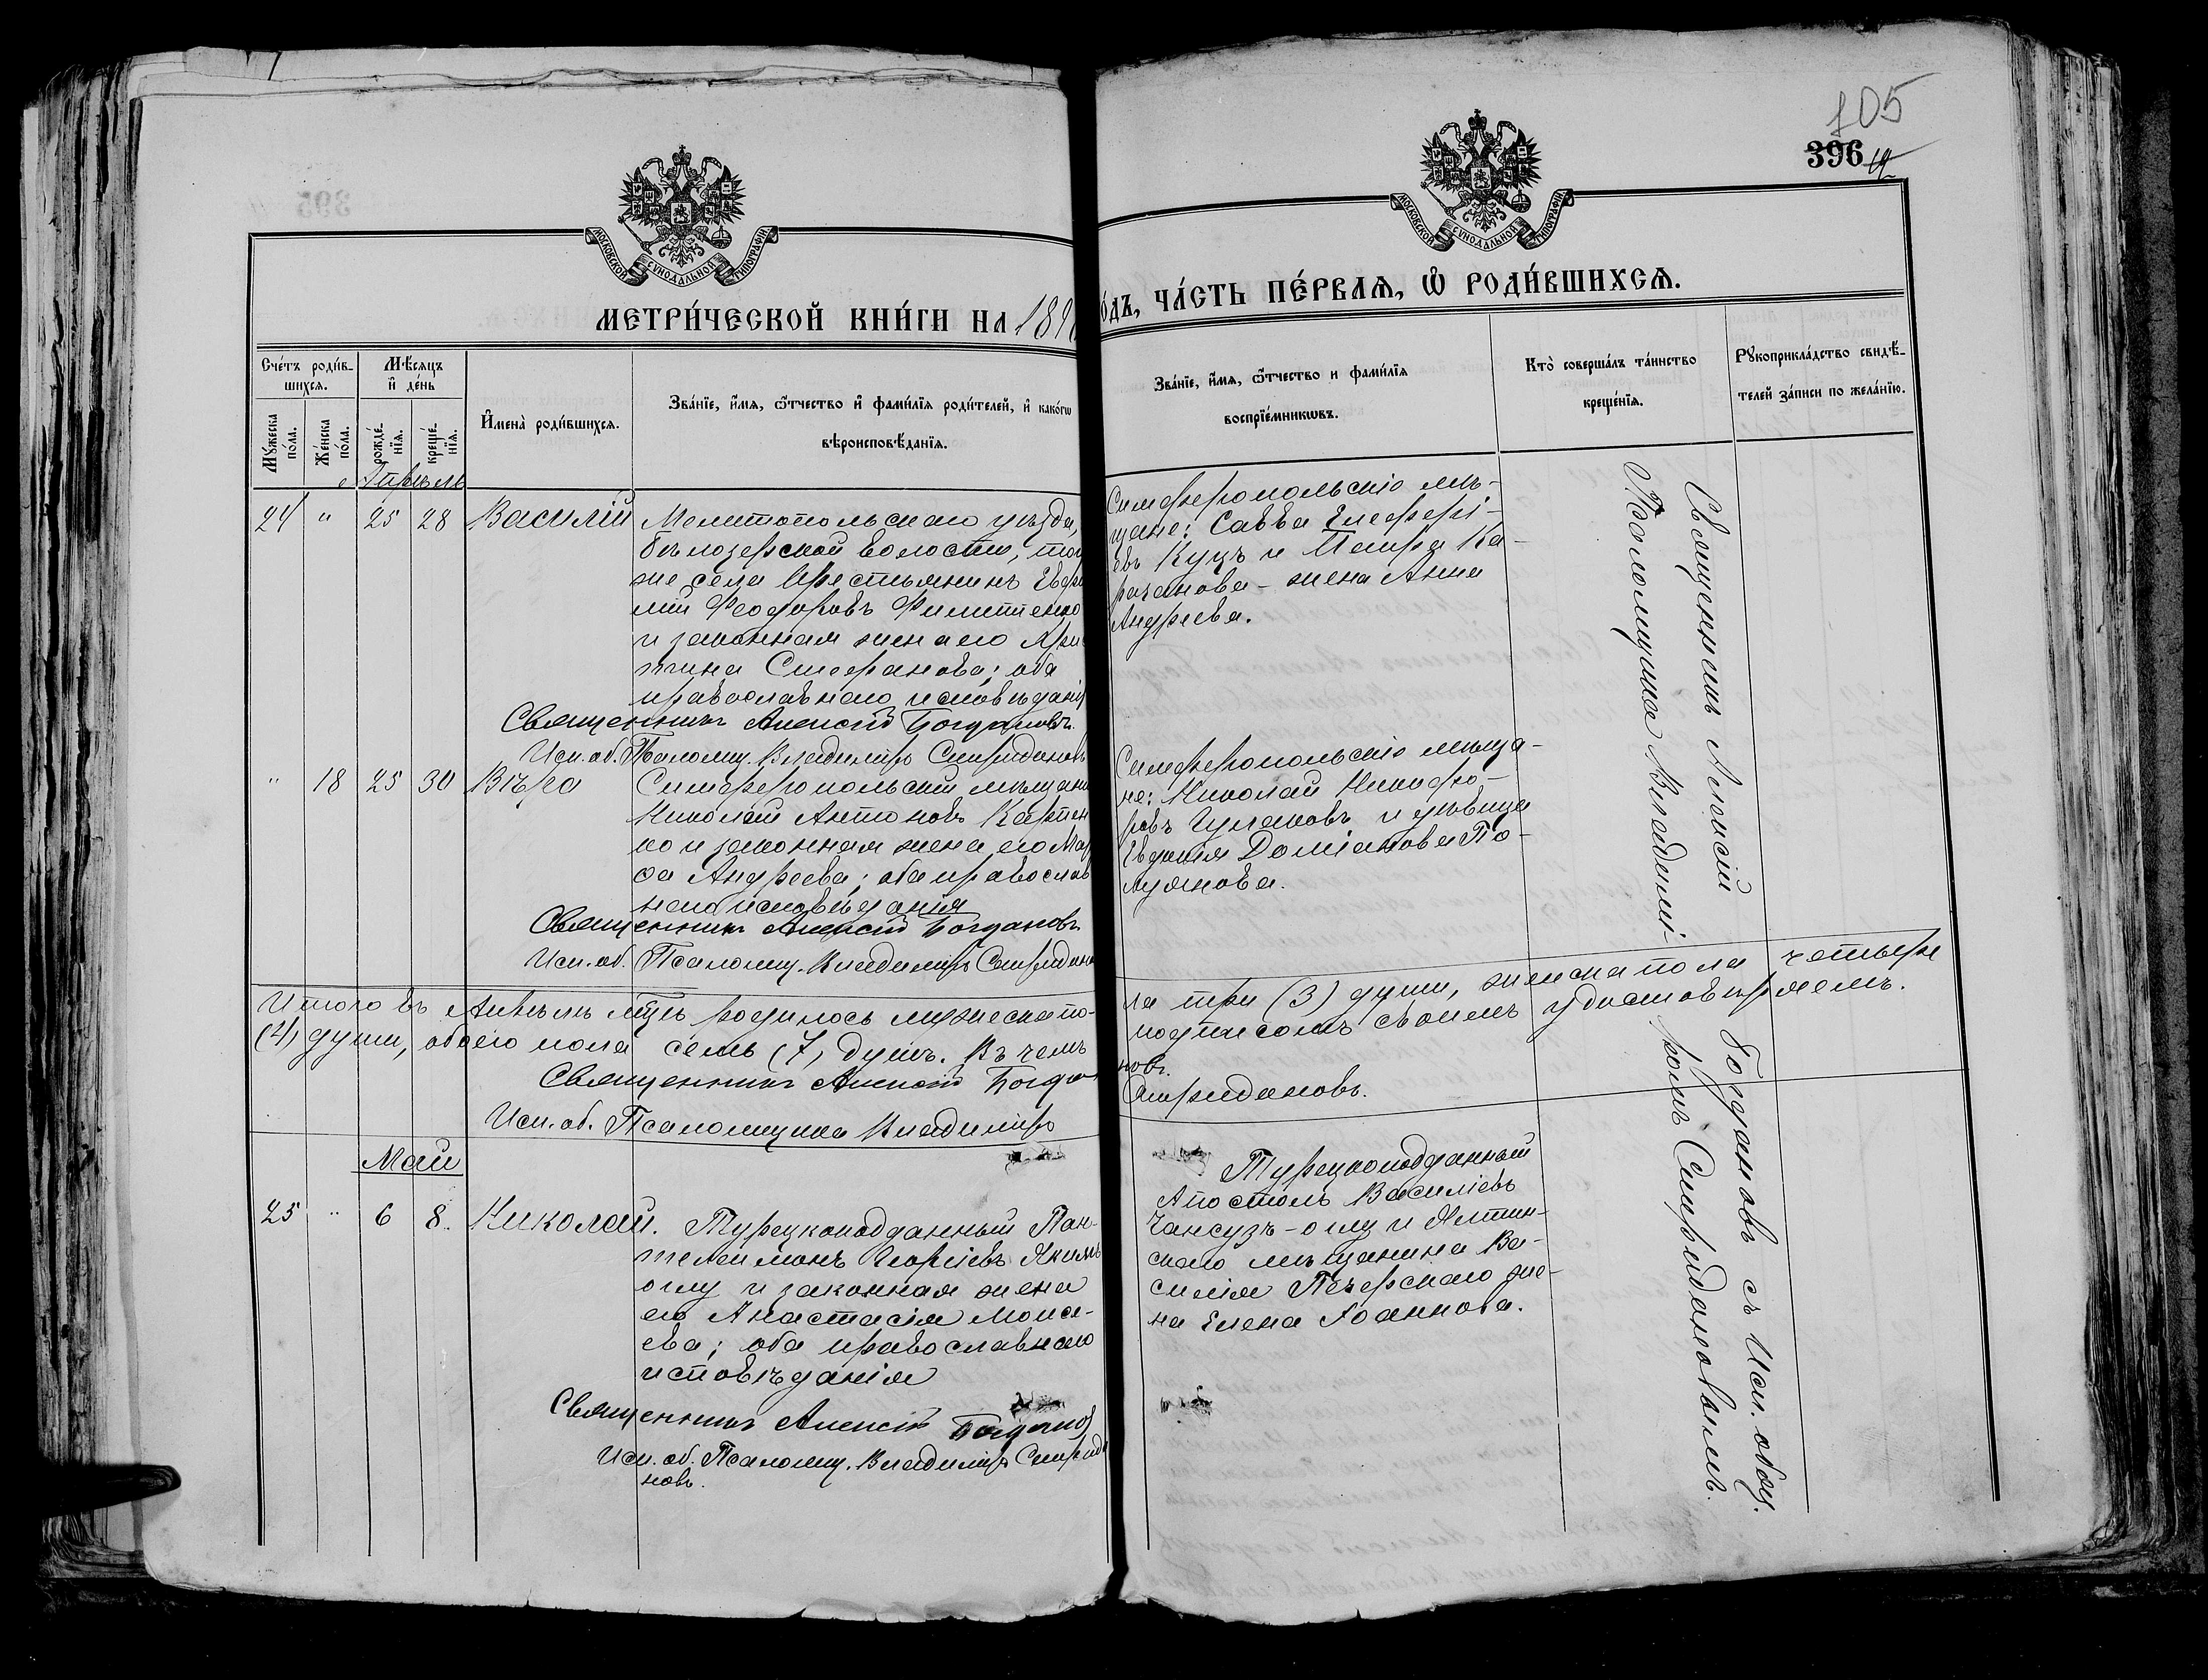 105
396
МОСКОВСКОЙ СѴНОДАЛЬНОЙ ТИПОГРАФІИ
МОСКОВСКОЙ СѴНОДАЛЬНОЙ ТИПОГРАФІИ
МЕТРИ́ЧЕСКОЙ КНИ́ГИ НА 189
О́ДЪ, ЧА́СТЬ ПЕ́РВАѦ, Ѿ РОДИ́ВШИХСѦ.
Сче́тъ роди́в-
шихся.
Мѣ́сяцъ
и҆ де́нь
Му́жеска
по́ла.
Же́нска
по́ла.
рожде́-
нїя.
креще́-
нїя.
И҆мена̀ роди́вшихся.
Зва́нїе, и҆́мя, ѻ҆́тчество и҆ фами́лїя роди́телей, и҆ како́гѡ
вѣроисповѣ́данїя.
Зва́нїе, и҆́мя, ѻ҆́тчество и фами́лїя
воспрїе́мникѡвъ.
Кто̀ соверша́лъ та́инство
креще́нїя.
Рꙋкоприкла́дство свидѣ́-
телей за́писи по жела́нїю.
Апрѣль
24 " 25 28 Василій
Мелитопольскаго уѣзда,
бѣлозерской волости, тог
же села крестьянинъ Евфи
мій Феодоровъ Филиппенко
и законная жена его Хри
стина Стефанова; оба
православнаго исповѣданія
Священникъ Алексій Богдановъ
Исп. об. Псаломщ. Владиміръ Спиридоновъ
Симферопольскіе мѣ-
щане: Савва Елефері-
евъ Куцъ и Петра Ка-
рачанова - жена Анна
Андреева.
" 18 25 30 Вѣра
Симферопольскій мѣщани
Николай Антоновъ Карпен
ко и законная жена его Мар
ѳа Андреева; оба православ
наго исповѣданія
Священникъ Алексій Богдановъ
Исп. об. Псаломщ. Владиміръ Спиридоно
Симферопольскіе мѣща-
не: Николай Никифо-
ровъ Чумаковъ и дѣвица
Евдокія Доміанова По-
луянова.
Итого въ Апрѣлѣ м-цѣ родилось мужеска по-
ла три (3) души, женска пола четыре
(4) души, обоего пола семь (7) душъ. Въ чемъ
подписомъ своимъ удостовѣряемъ.
Священникъ Алексій Богда
новъ.
Исп. об. Псаломщика Владиміръ
Спиридоновъ.
Май
25 " 6 8. Николай.
Турецкоподданный Пан-
телеимонъ Георгіевъ Якимъ
оглу и законная жена
его Анастасія Моисе-
ева; оба православнаго
исповѣданія
Священникъ Алексій Богданов
Исп. об. Псаломщ. Владиміръ Спиридо
новъ.
Турецкоподданный
Апостолъ Василіевъ
Чансузъ-оглу и Ялтин-
скаго мѣщанина Ва-
силія Печерскаго же-
на Елена Іоаннова.
Священникъ Алексій Богдановъ съ Исп. обяз.
Псаломщика Владимі-
ромъ Спиридоновымъ.